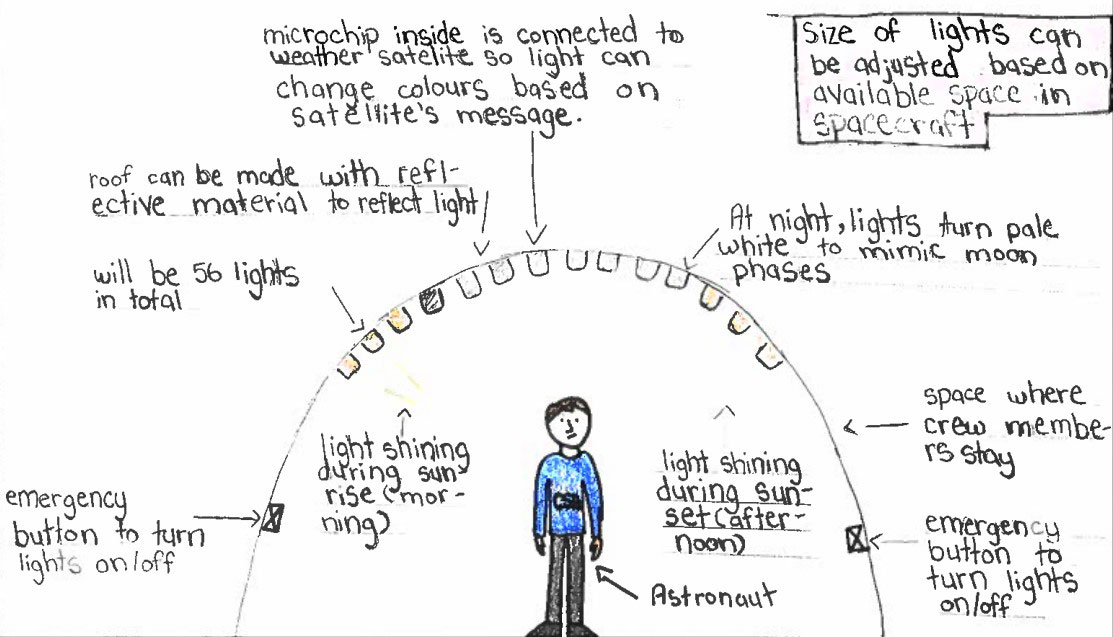 microchip inside is connected to
weather satelite so light can
change colours based on
satellite's message.
Size of lights can
be adjusted based on
available space in
spacecraft
roof can be made with refl-
ective material to reflect light
At night, lights turn pale
white to mimic moon
phases
will be 56 lights
in total
space where
crew membe-
rs stay
light shining
during sun-
rise (mor-
ning)
light shining
during sun-
set (after-
noon)
emergency
button to turn
lights on/off
emergency
button to
turn lights
on/off
Astronaut